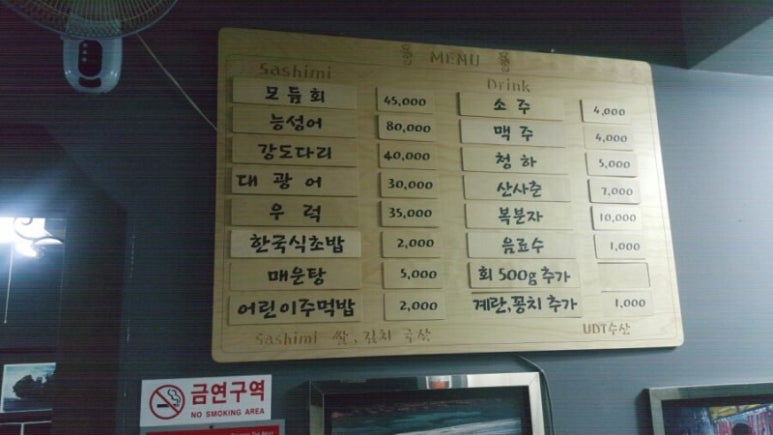 MENU
Sashimi
모듬회 45,000
능성어 80,000
강도다리 40,000
대광어 30,000
우럭 35,000
한국식초밥 2,000
매운탕 5,000
어린이주먹밥 2,000
Drink
소주 4,000
맥주 4,000
청하 5,000
산사춘 7,000
복분자 10,000
음료수 1,000
회 500g 추가
계란,꽁치 추가 1,000
Sashimi 쌀, 김치 국산
UDT수산
금연구역
NO SMOKING AREA